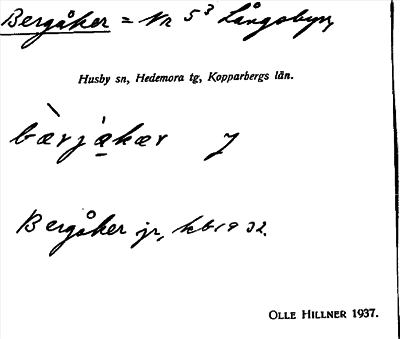 Bergåker = Nr 5³ Långsbyn
Husby sn, Hedemora tg, Kopparbergs län.
bæ̀rjákær
Bergåker jr, kb 1932.
OLLE HILLNER 1937.